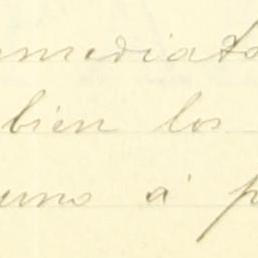 nmediata
bien los
uno á p